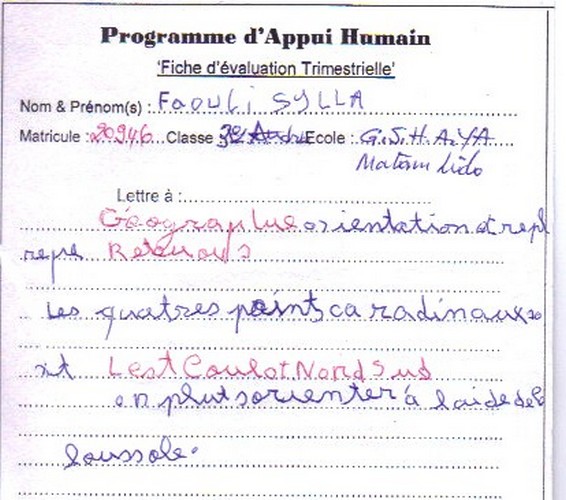 Programme d'Appui Humain
'Fiche d'évaluation Trimestrielle'
Nom & Prénom(s) : Faouli SYLLA
Matricule : 20946 Classe Ecole : G.S.H.A.YA
Matam Lido
Lettre à :
Géographie orientation et repl
repe
Les quatres points ca radinaux so
nt Lest Loulot Nord Sud
on plut sorienter à laide de l
boussole.